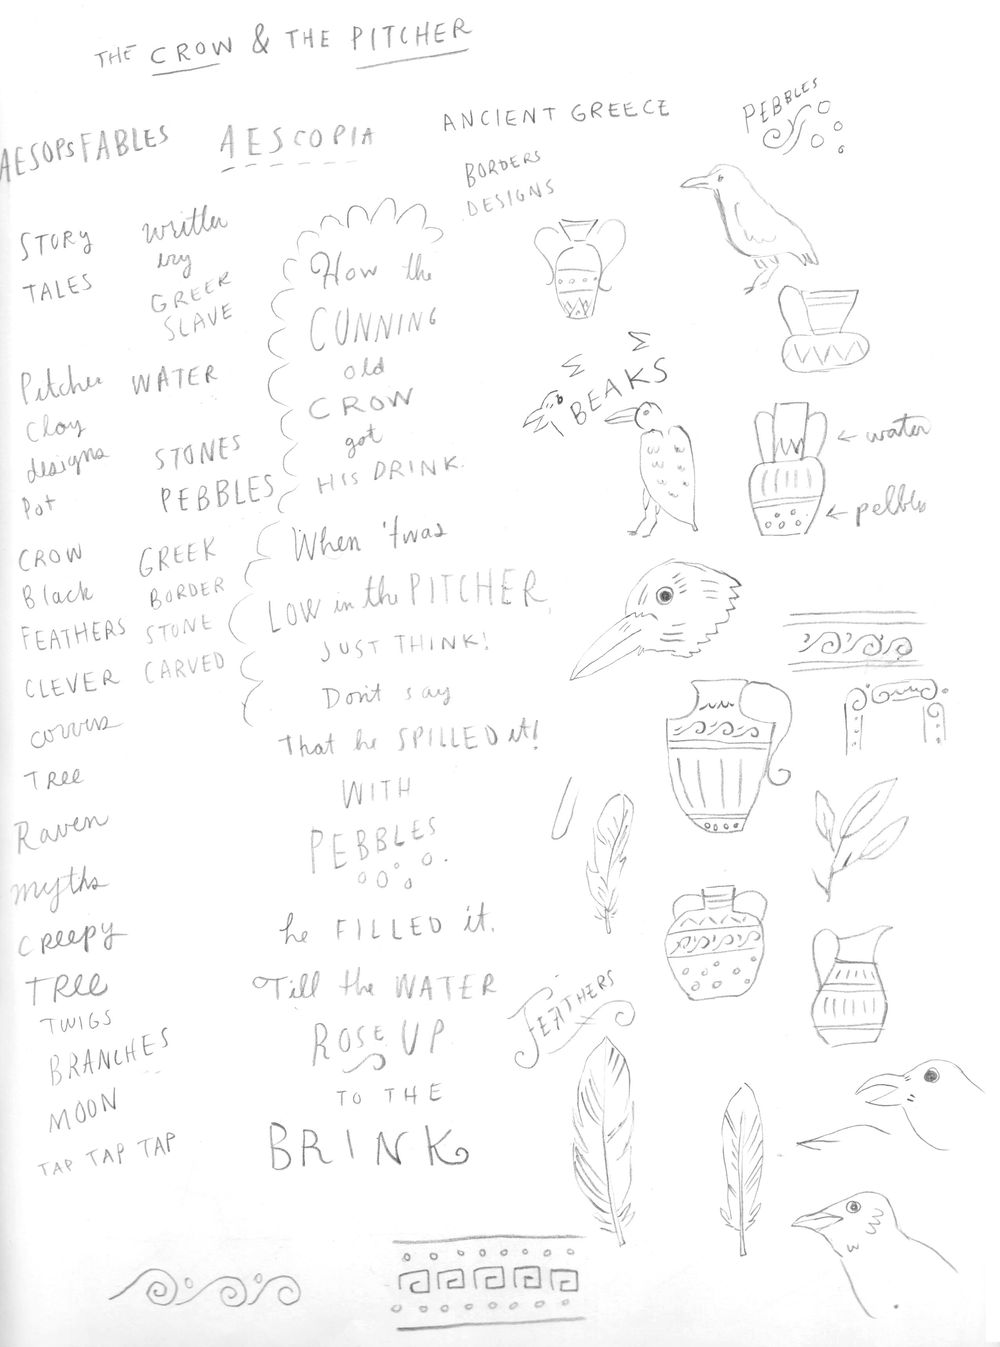 THE CROW & THE PITCHER
AESOPS FABLES
AESCOPIA
ANCIENT GREECE
PEBBLES
BORDERS
DESIGNS
STORY
TALES
written
by
GREEK
SLAVE
Pitcher
Clay
designs
Pot
WATER
STONES
PEBBLES
CROW
Black
FEATHERS
CLEVER
corvus
GREEK
BORDER
STONE
CARVED
TREE
Raven
myths
creepy
TREE
TWIGS
BRANCHES
MOON
TAP TAP TAP
How the
CUNNING
old
CROW
got
HIS DRINK.
When 'twas
LOW in the PITCHER,
JUST THINK!
Don't say
That he SPILLED it!
WITH
PEBBLES
he FILLED it.
Till the WATER
ROSE UP
TO THE
BRINK
BEAKS
← water
← pebbles
FEATHERS